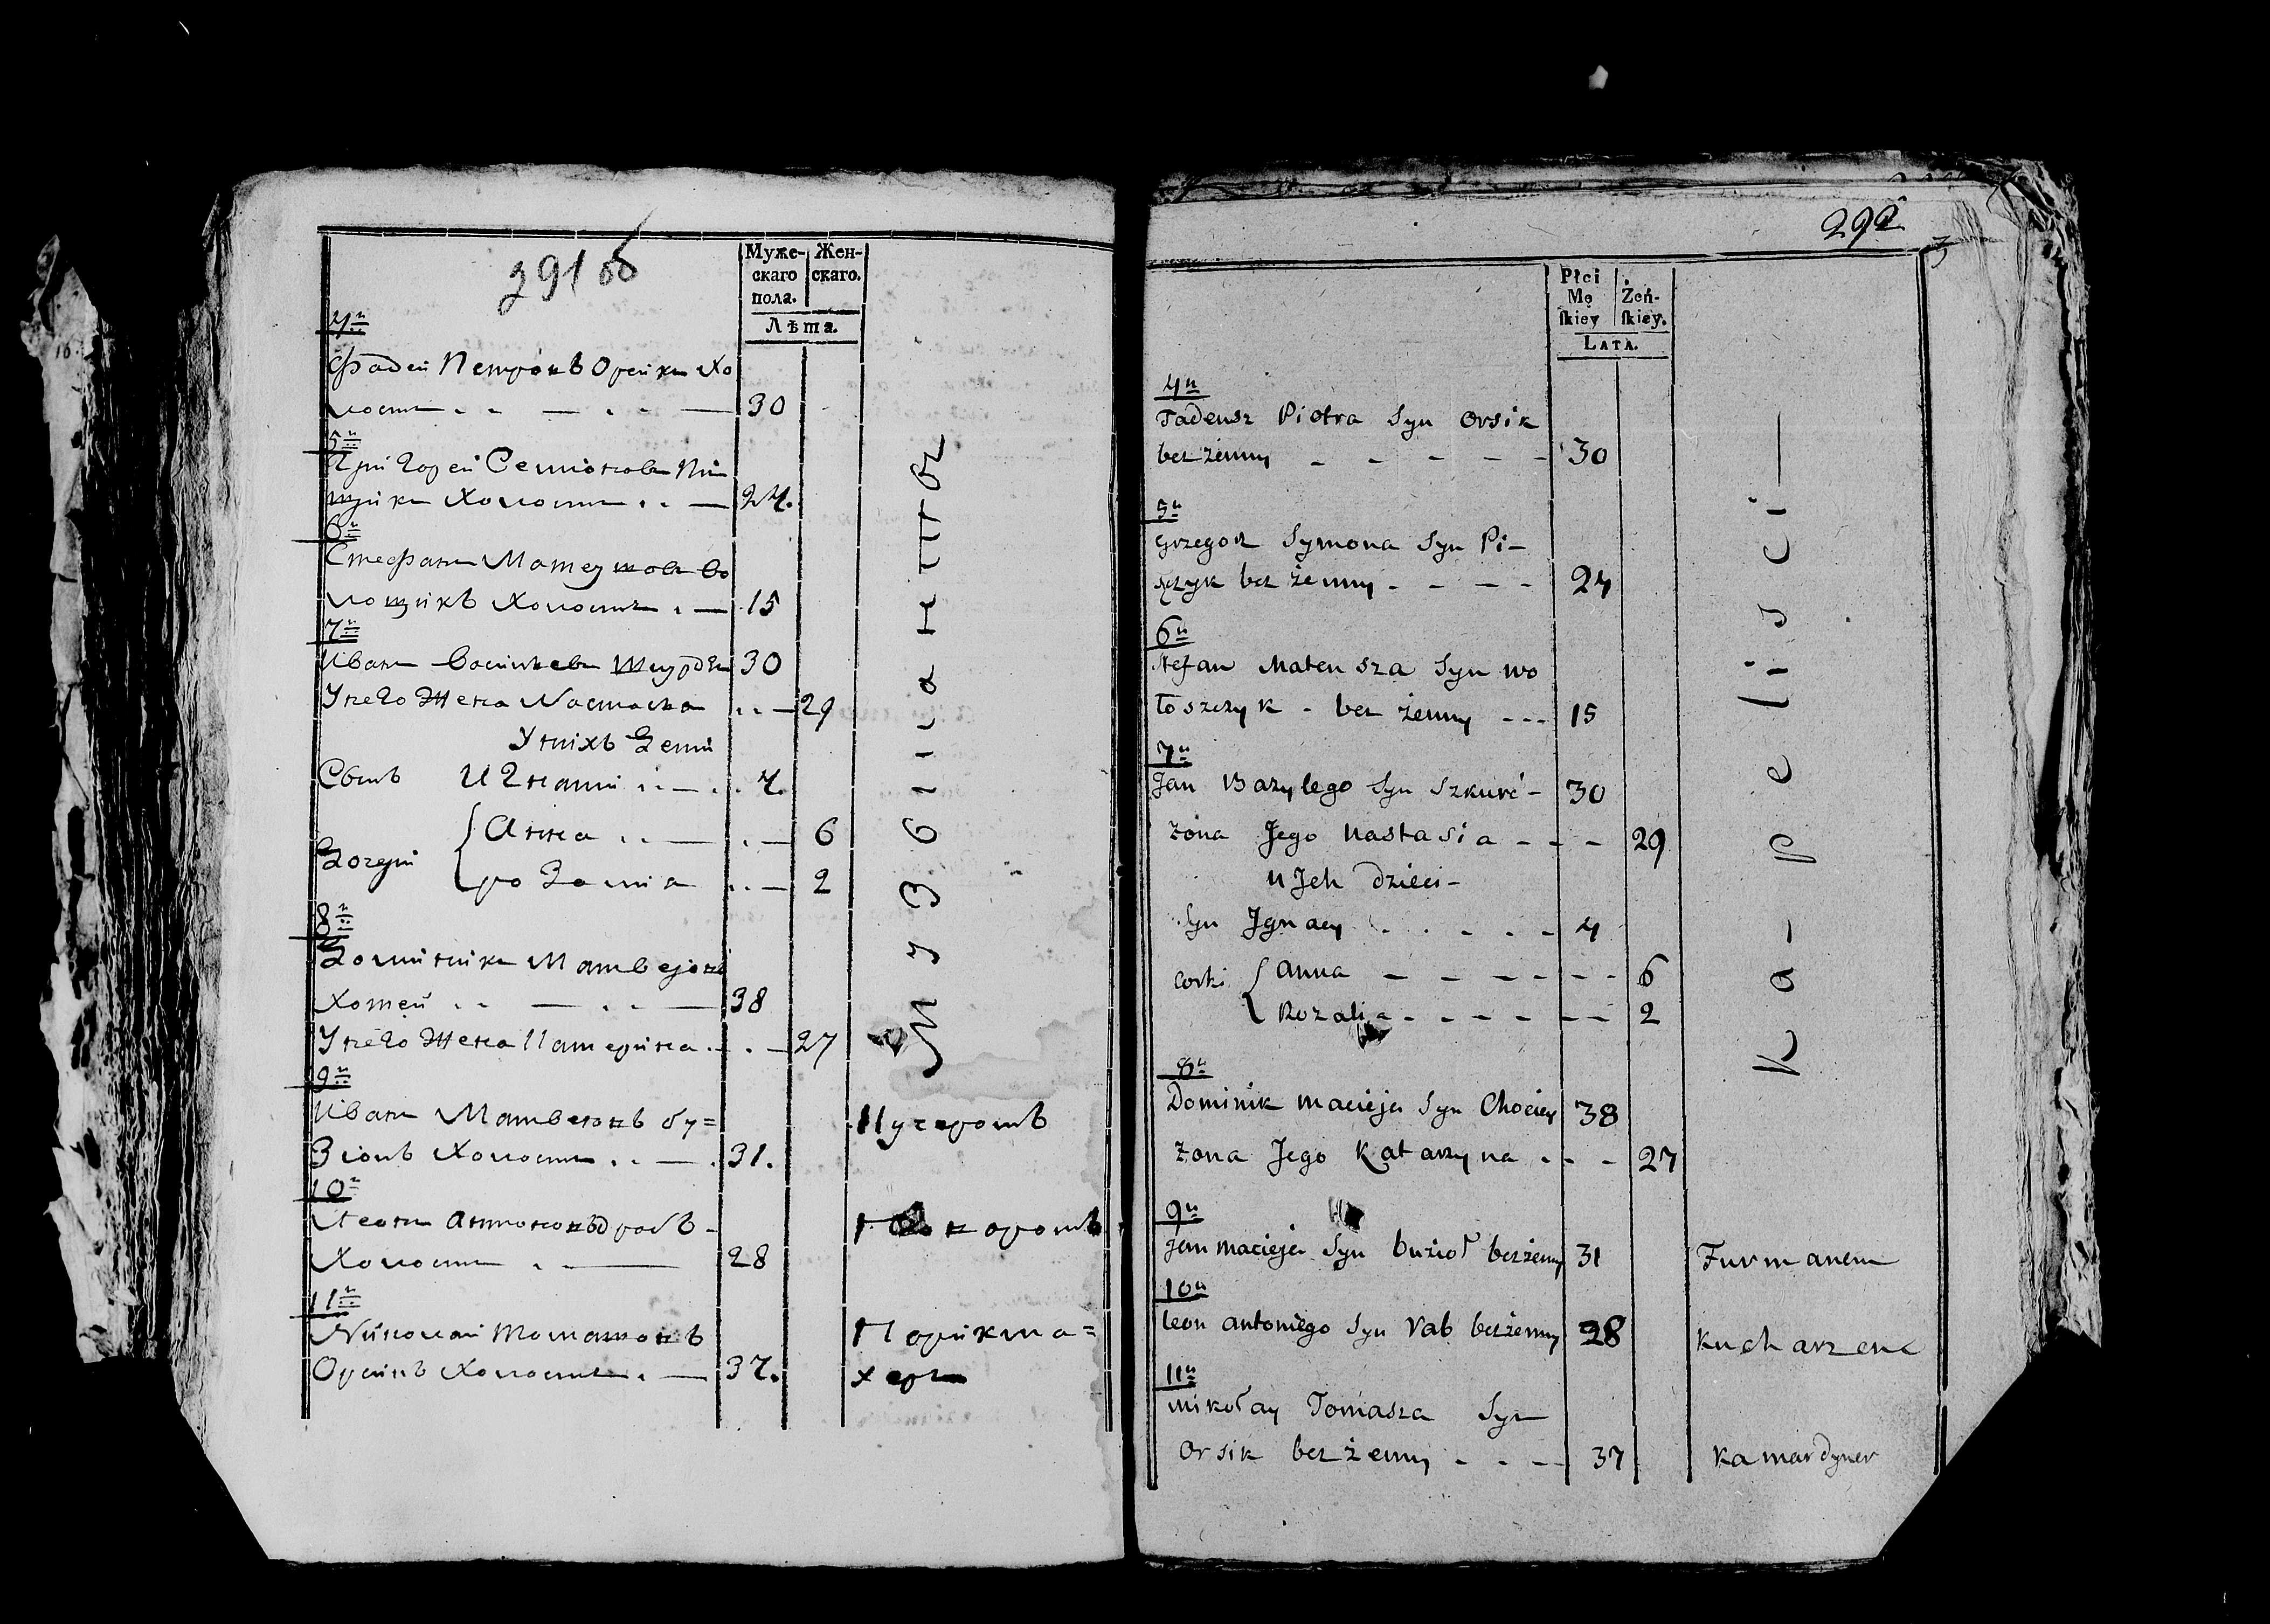 291 об
Муже-
скаго
пола.
Жен-
скаго.
Лѣта.
4й
Фадей Петровъ Орсикъ хо
лостъ 30
5й
Григорей Семіоновъ Пи
щикъ холостъ 24.
6й
Стефанъ Матеушовъ Во
лощикъ холостъ 15
7й
Иванъ Василевъ Шкурдзь 30
У него Жена Настасія 29
У нихъ Дети
Сынъ Игнатій 4.
Дочери { Анна 6
Розалия 2
8й
Доминикъ Матвеіовъ
Хотей 38
У него Жена Катерина 27
9й
Иванъ Матвеіовъ бу=
зіолъ холостъ 31.
Кучеромъ
10й
Леонъ Антоновъ рабъ -
Холостъ 28
Поваромъ
11й
Николай Томашовъ
Орсикъ холостъ 37.
Парикма=
херъ
Музыкантъ
292
Płci
Mę
ſkiey
Żeń-
ſkiey.
LATA.
4u
Tadeusz Piotra Syn Orsik
bezżenny 30
5u
Grzegorz Symona Syn Pi-
szczyk bez żenny 24
6u
Stefan Mateusza Syn Wo
łoszczyk - bez żenny 15
7u
Jan Bazylego Syn Szkurć - 30
żona Jego Nastasia 29
u Jch dzieci -
Syn Jgnacy 4
Corki { Anna 6
Rozalia 2
8u
Dominik Macieja Syn Chociey 38
żona Jego Katarzyna 27
9u
Jan Macieja Syn Buzioł bezżenny 31
Furmanem
10u
Leon Antoniego Syn Rab bezżenny 28
Kucharzem
11u
Mikołay Tomasza Syn
Orsik bez żenny 37
Kamardyner
Ka-peliści